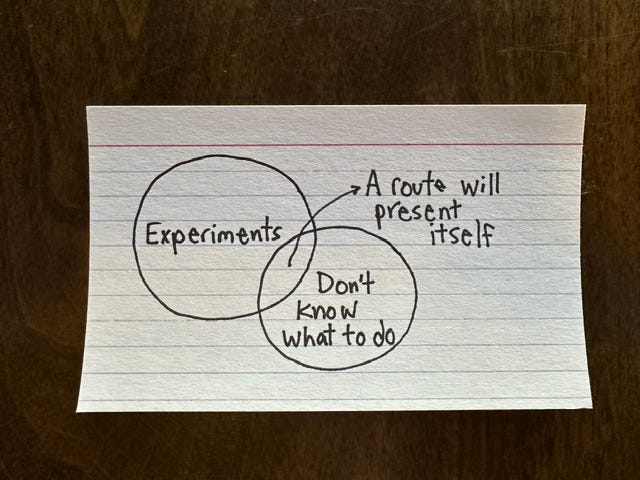 Experiments
A route will
present
itself
Don't
know
what to do